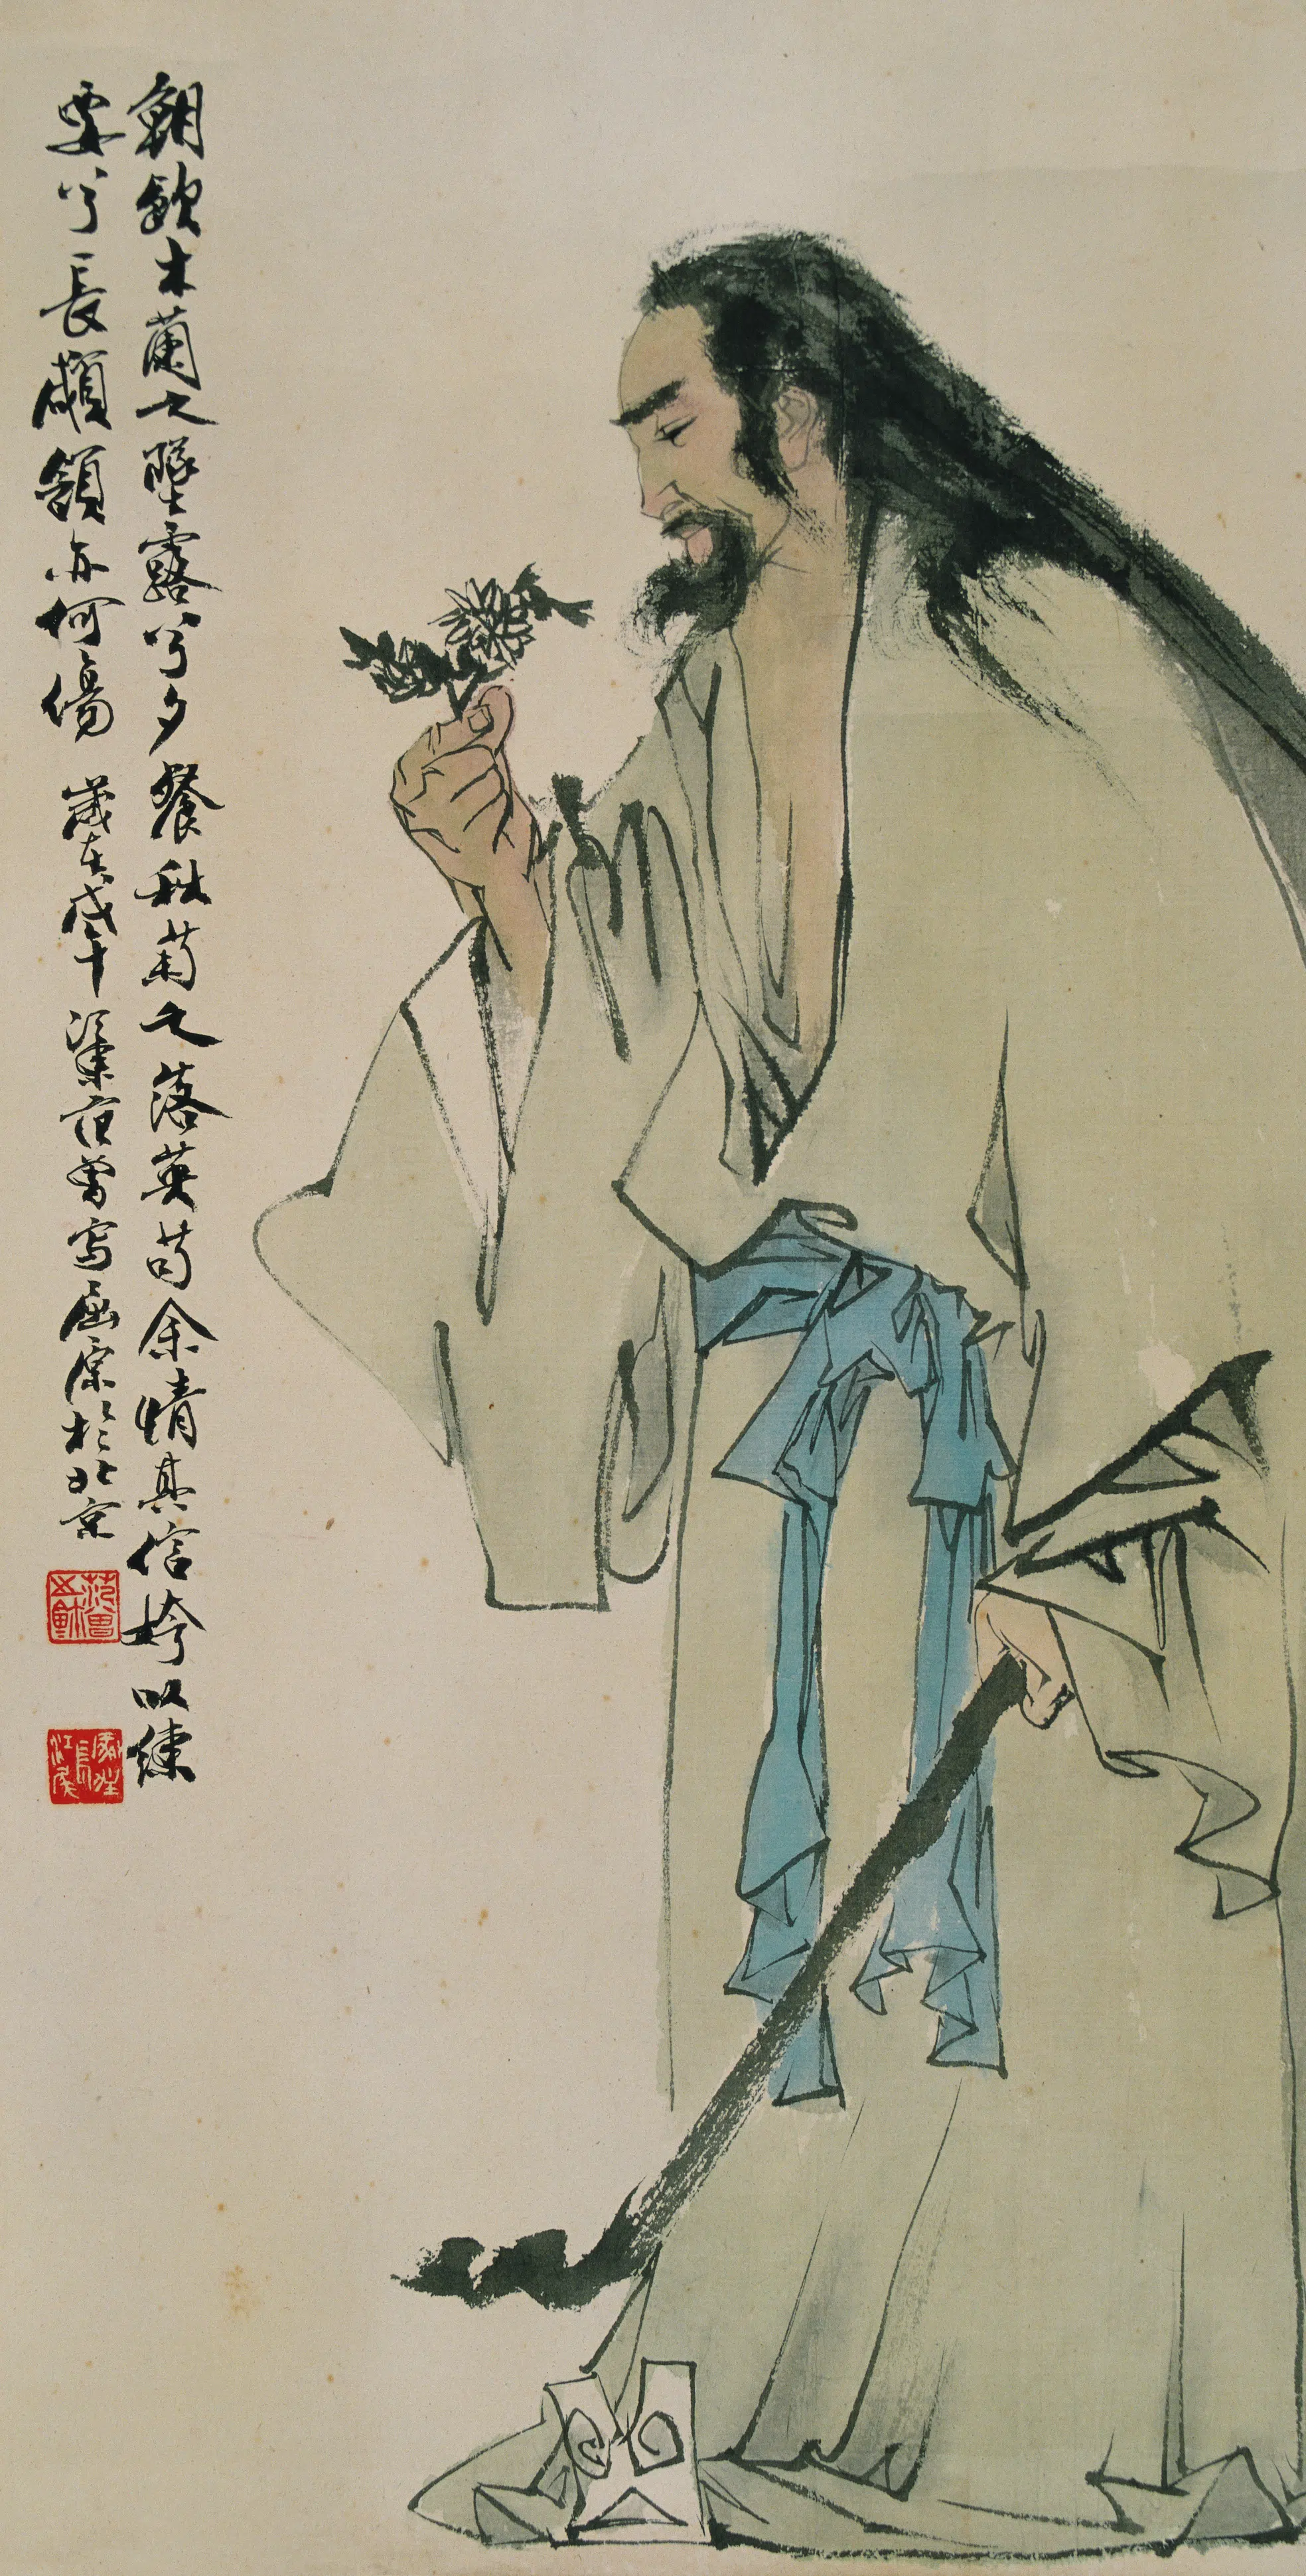 朝飲木蘭之墜露兮夕餐秋菊之落英苟余情其信姱以練
要兮長顑頷亦何傷 歲在戊午 江東范曾寫屈原於北京